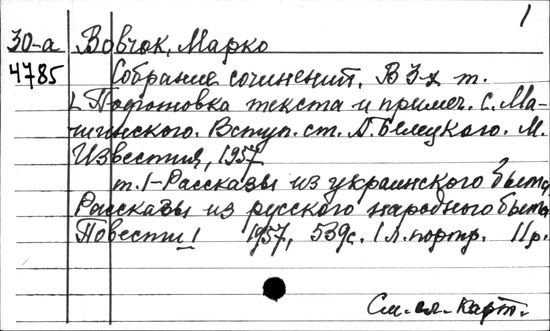 1
30-а Вовчок, Марко
4785 Собрание сочинений. В 3-х т.
[Подготовка текста и примеч. С. Ма-
шинского. Вступ. ст. А. Белецкого. М.
Известия, 1957
т. 1 - Рассказы из украинского быта
Рассказы из русского народного быта
Повести] 1957, 539с. 1 л. портр. 11р.
См. сл. карт.